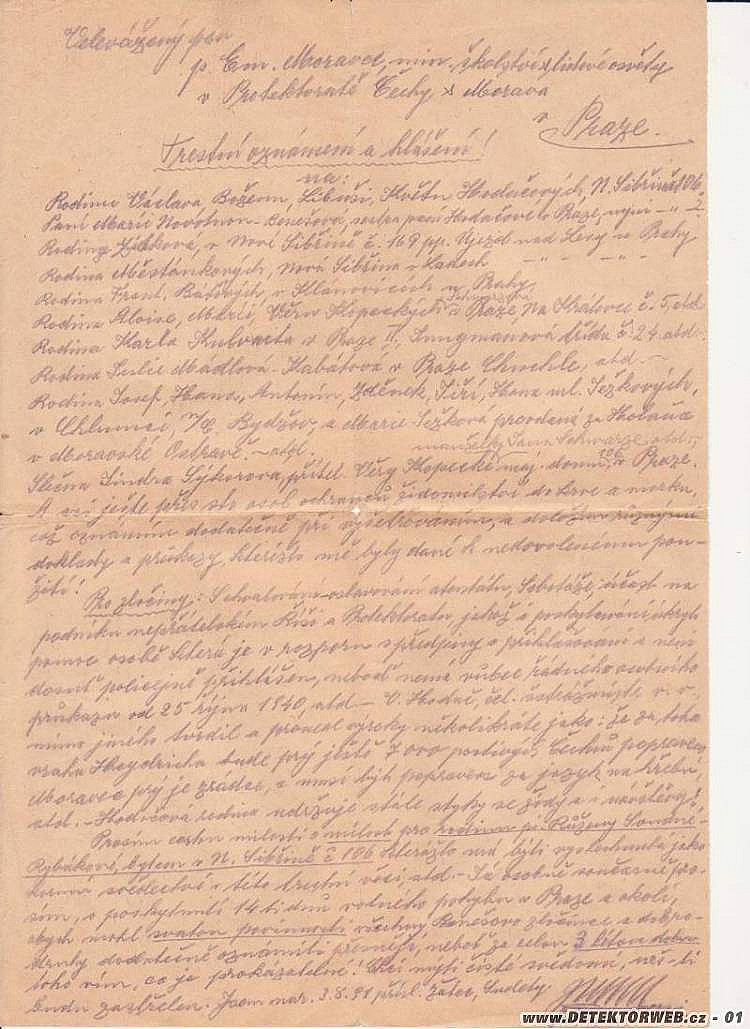 Velevážený pan
p. Em. Moravec, min. školství a lidové osvěty
v Protektorátě Čechy a Morava
v Praze.
Trestní oznámení a hlášení!
na:
Rodinu Václava, Boženu, Libuši, Květu Hodačových, N. Sibřina 186,
Paní Marii Novotnou-Benešová, sestra paní Hodačové v Praze, nyní
Rodina Zí­kova, v Nové Sibřině č. 169 pp. Újezd nad Lesy u Prahy
Rodina Měšťánkových, Nová Sibřina
Rodina Frant. v Klánovicích u Prahy,
Rodina Aloise, Marie, Věry Kopeckých v Praze, Na Královce č. 5, atd
Rodina Karla v Praze II, Jungmanová třída č. 24 atd.
Rodina Leslie Mádlová-Habátová v Praze Chuchle, atd.
Rodina Josef, Hana, Antonín, Zdeněk, Jiří, Hana ml. Ježkových,
v Chlumci, n/C. Bydžov, a Marie Ježková provdaná za
v Moravské Ostravě. atd. manželky Jana Schwarze atd.
Slečna Jindra Sýkorova, přítel Věry Kopecké maj. domu v Praze.
A asi ještě přes sto osob ochranců židomilství do krve a morku,
což oznámím dodatečně při vyšetřováním, a doložím různými
doklady a průkazy, kterížto mě byly dané k nedovolenému pou-
žití!
Pro zločiny: Schvalování-oslavování atentátu, Sabotáže, účast na
podniku nepřátelském Říši a Protektorátu, jakož i poskytování úkrytu
pomoc osobě která je v rozporu s předpisy o přihlašování a není
dosud policejně přihlášen, neboď nemá vůbec řádného osobního
průkazu od 25 října 1940, atd- V. Hodač, čet. v. v.
mimo jiného tvrdil a pronesl výroky několikráte jako: že za toho
vraha Heydricha bude prý ještě 7000 postižených Čechů popraveno
Moravec prý je zrádce, a musí býti popraven za jazyk na hřebu,
atd. - Hodačová rodina udržuje stále styky se židy a i
Prosím cestou milosti o milost pro rodinu pí. Růženy
Rybákové, bytem v N. Sibřině č 186 kterážto má býti vyslechnutá jako
korunní svědectví v této trestní věci, atd- Já osobně současně pro-
sím, o poskytnutí 14ti dnů volného pohybu v Praze a okolí,
abych mohl svatou povinností všechny Benešovo zločince a dobro-
druhy dodatečně oznámiti neboť za celou 3 létou dobu
toho vím, co je prokazatelné! Chci míti čisté svědomí, než-li
budu zastřelen. Jsem nar. 3.8.91 přísl. Žatec, Sudety
www.DETEKTORWEB.cz - 01